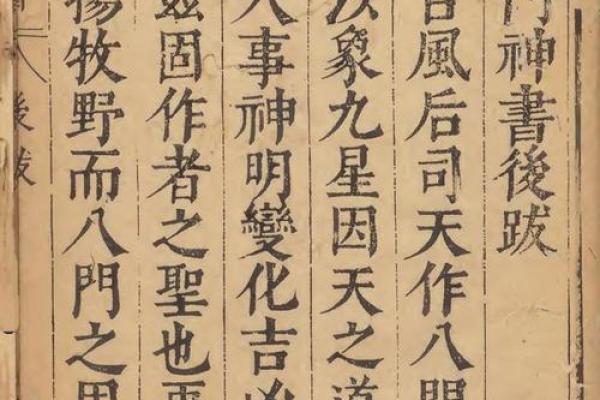 門神書後跋
昔風后司天作八門
象九星因天之道
人事神明變化吉凶
兹固作者之聖也
揚牧野而八門之用
後跋